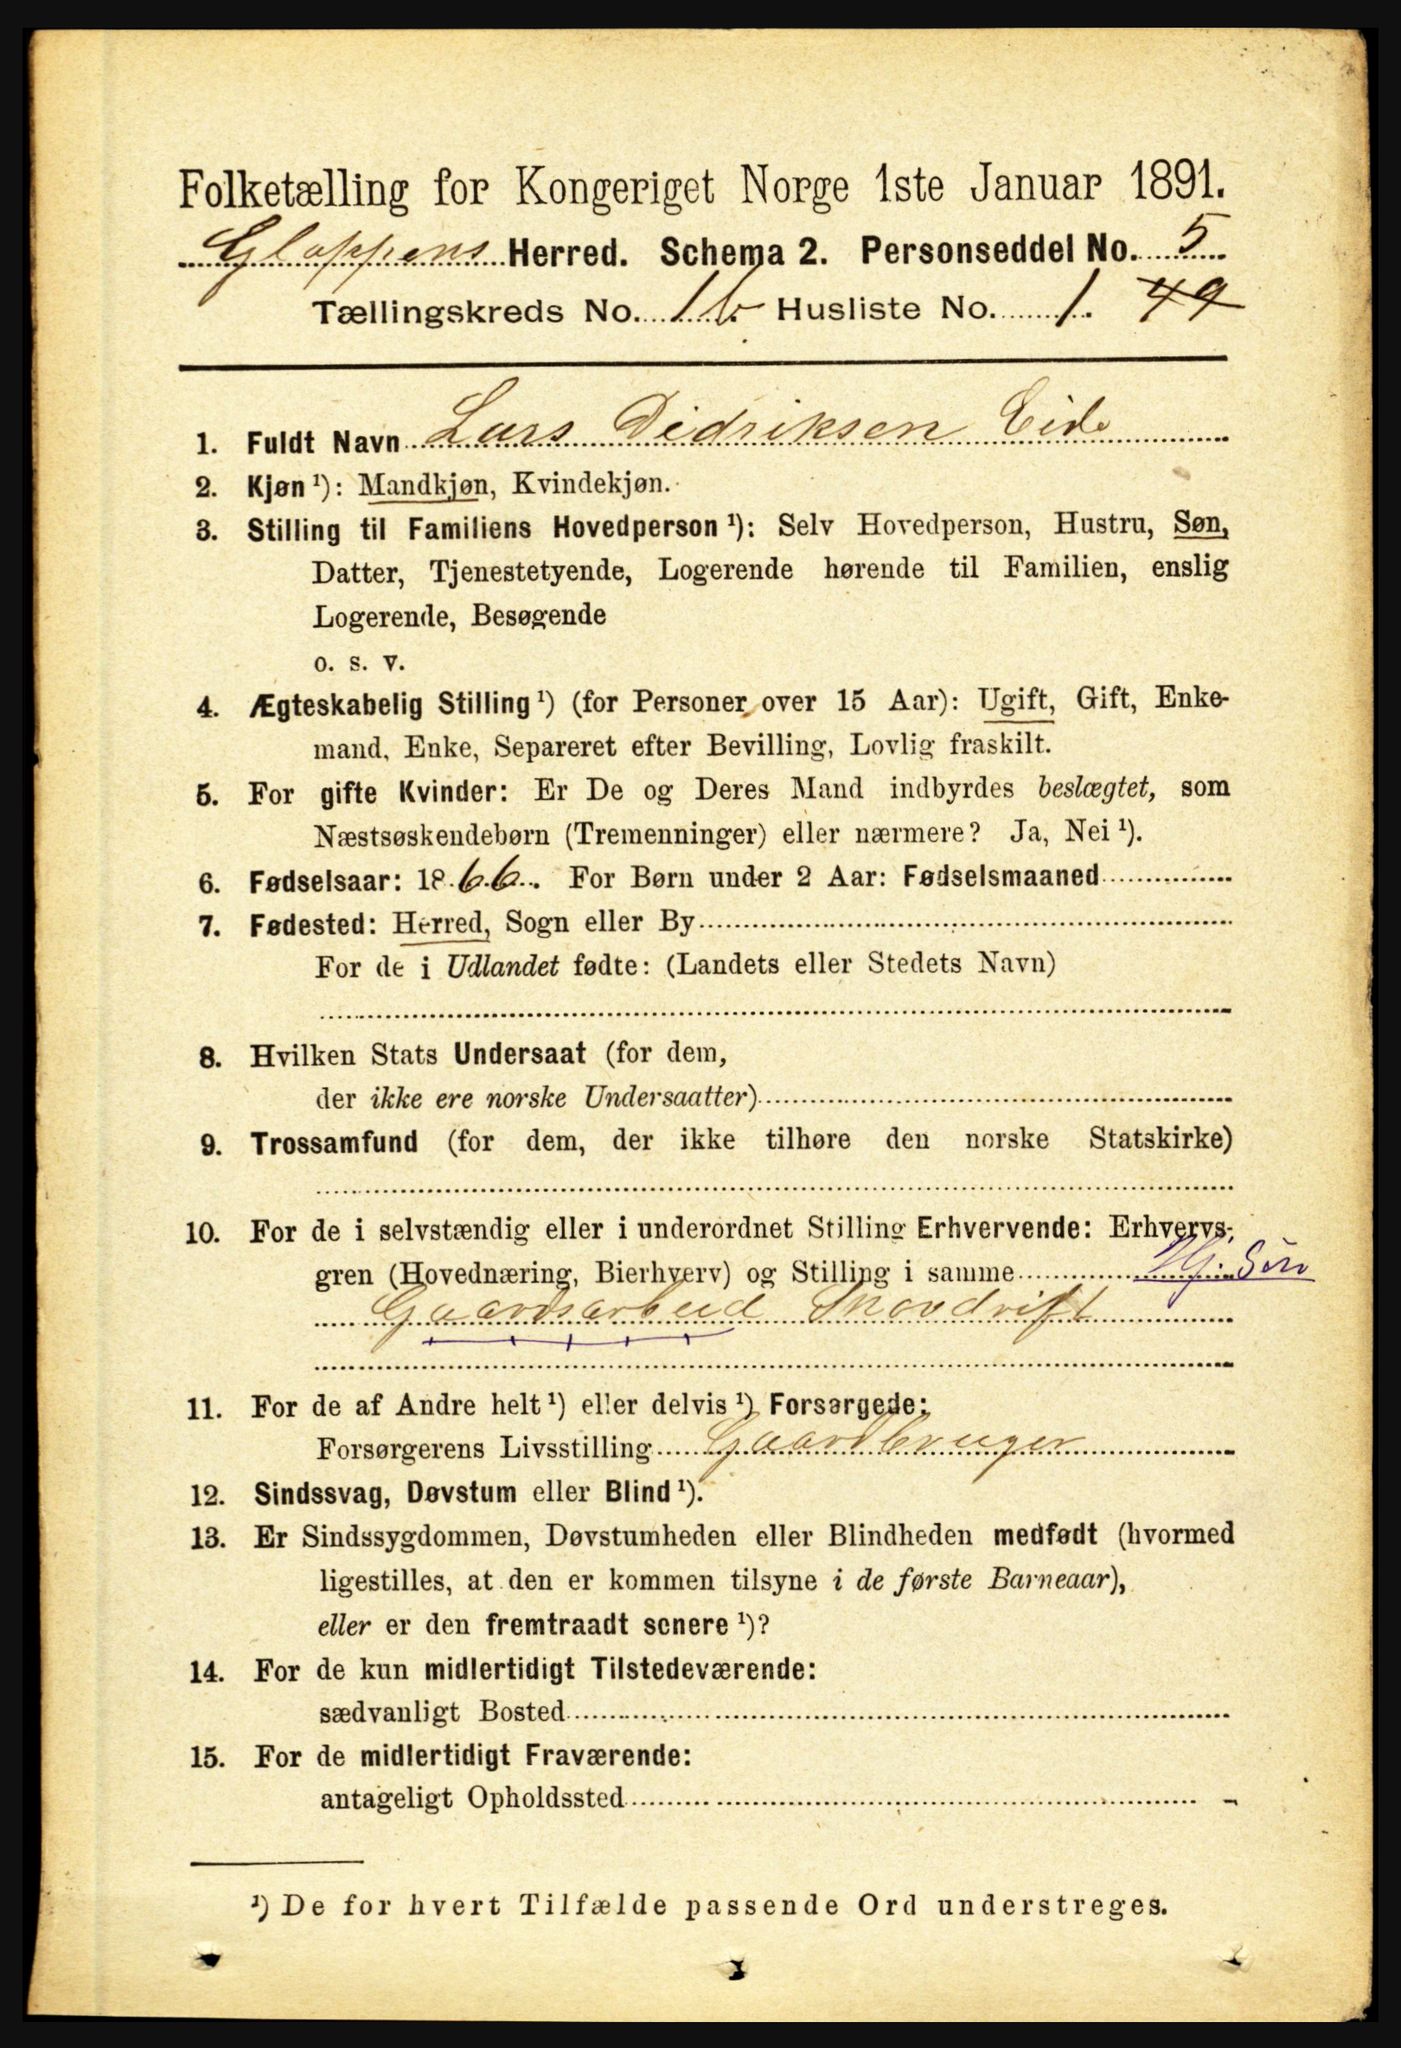 Folketælling for Kongeriget Norge 1ste Januar 1891.
Gloppens Herred. Schema 2. Personseddel No. 5
Tællingskreds No. 1b Husliste No. 1. 49
1. Fuldt Navn Lars Didriksen Eide
2. Kjøn ¹): Mandkjøn, Kvindekjøn.
3. Stilling til Familiens Hovedperson ¹): Selv Hovedperson, Hustru, Søn,
Datter, Tjenestetyende, Logerende hørende til Familien, enslig
Logerende, Besøgende
o. s. v.
4. Ægteskabelig Stilling ¹) (for Personer over 15 Aar): Ugift, Gift, Enke-
mand, Enke, Separeret efter Bevilling, Lovlig fraskilt.
5. For gifte Kvinder: Er De og Deres Mand indbyrdes beslægtet, som
Næstsøskendebørn (Tremenninger) eller nærmere? Ja, Nei ¹).
6. Fødselsaar: 1866. For Børn under 2 Aar: Fødselsmaaned
7. Fødested: Herred, Sogn eller By
For de i Udlandet fødte: (Landets eller Stedets Navn)
8. Hvilken Stats Undersaat (for dem,
der ikke ere norske Undersaatter)
9. Trossamfund (for dem, der ikke tilhøre den norske Statskirke)
10. For de i selvstændig eller i underordnet Stilling Erhvervende: Erhvervs-
gren (Hovednæring, Bierhverv) og Stilling i samme Søn
Gaardsarbeid Skovdrift
11. For de af Andre helt ¹) eller delvis ¹) Forsørgede:
Forsørgerens Livsstilling Gaardbruger
12. Sindssvag, Døvstum eller Blind ¹).
13. Er Sindssygdommen, Døvstumheden eller Blindheden medfødt (hvormed
ligestilles, at den er kommen tilsyne i de første Barneaar),
eller er den fremtraadt senere ¹)?
14. For de kun midlertidigt Tilstedeværende:
sædvanligt Bosted
15. For de midlertidigt Fraværende:
antageligt Opholdssted
¹) De for hvert Tilfælde passende Ord understreges.